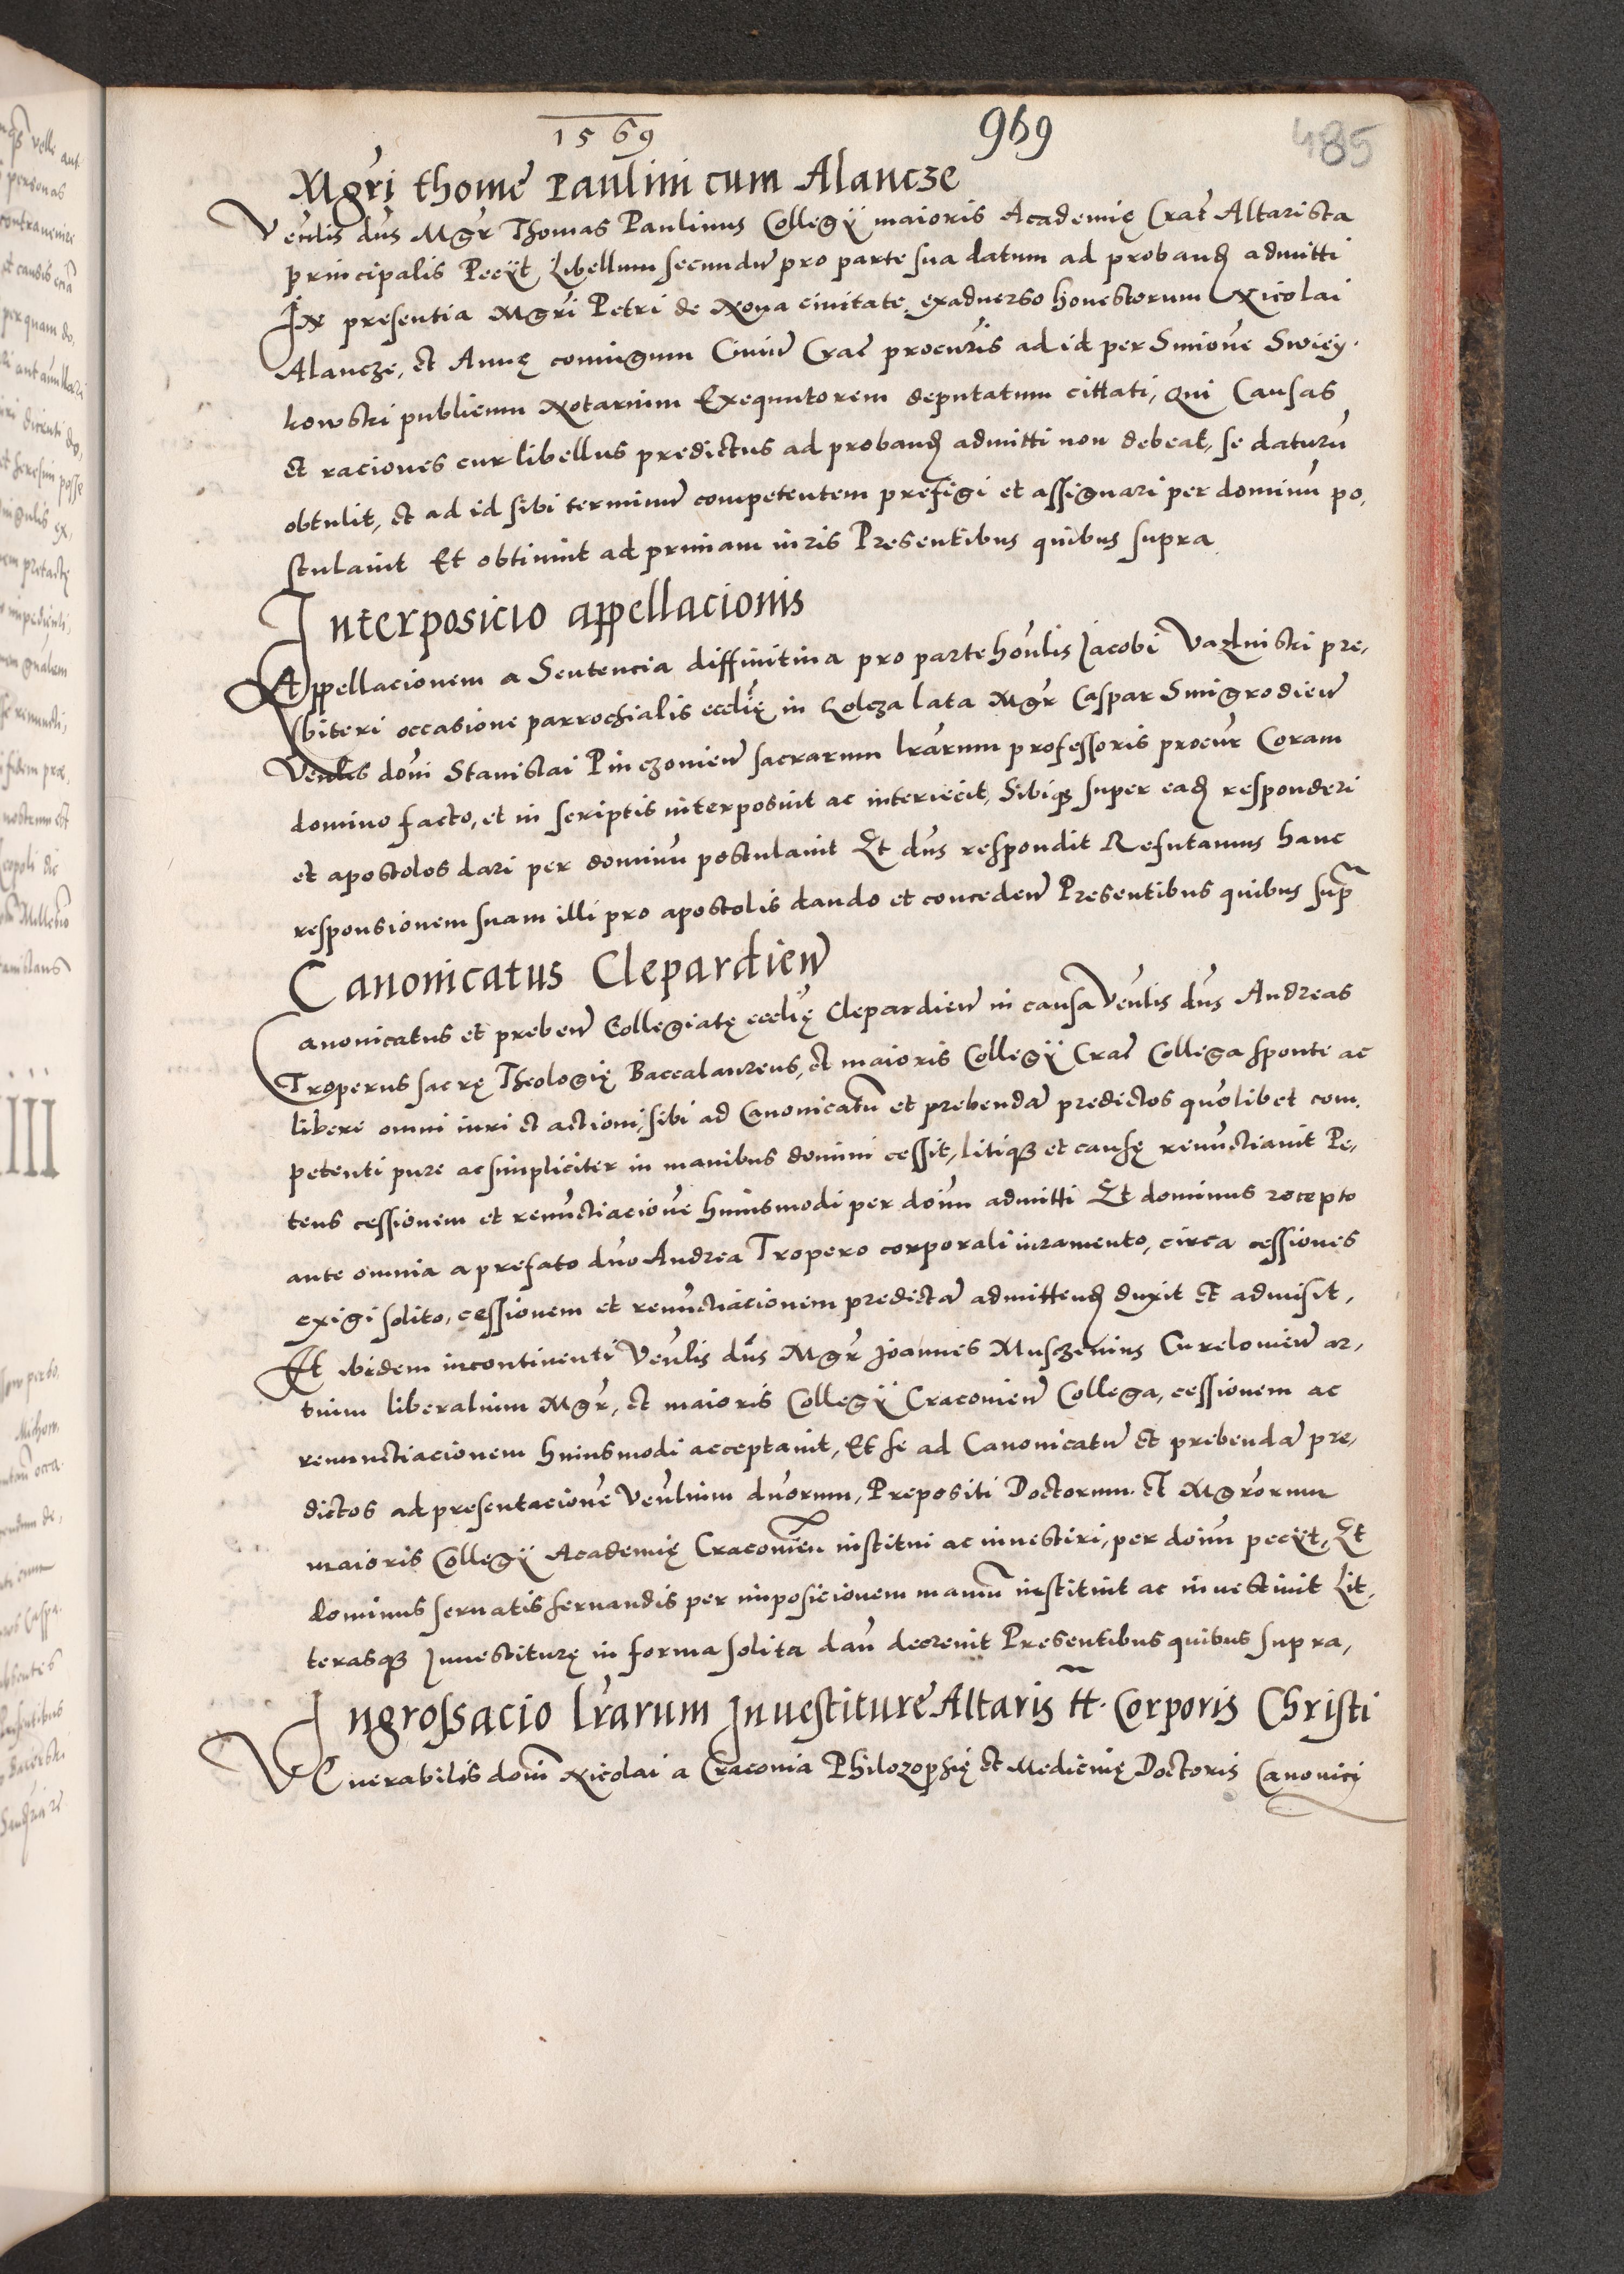 1569
969
485
Mgri thome Paulini cum Alancze
Venlis dns Mgr Thomas Paulinus Collegÿ maioris Academię Crac Altarista
principalis Pecÿt Libellum secundu pro parte sua datum ad proband admitti
In presentia Mgri Petri de Noua ciuitate exaduerso honestorum Nicolai
Alancze, et Annę coniugum Ciuiu Crac procuris ad id per Simone Swięy.
kowski publicum Notarium Exequutorem deputatum cittati, Qui Causas
et raciones cur libellus predictus ad proband admitti non debeat, se daturu
obtulit, et ad id sibi terminu competentem prefigi et assignari per dominu po,
stulauit Et obtinuit ad primam iuris Presentibus quibus supra
Interposicio appellacionis
Appellacionem a Sentencia diffinitiua pro parte honlis Jacobi Vazlinski pre,
sbiteri occasione parrochialis ecclię in Lolcza lata Mgr Caspar Smigrodien
Venlis doni Stanislai Pinczonien sacrarum lrarum professoris procur Coram
domino facto, et in scriptis interposuit ac interiecit, Sibiq super ead responderi
et apostolos dari per dominu postulauit Et dns respondit Refutamus hanc
responsionem suam illi pro apostolis dando et conceden Presentibus quibus sup
Canonicatus Clepardien
Canonicatus et preben Collegiatę ecclię Clepardien in causa Venlis dns Andreas
Troperus sacrę Theologię Baccalaureus, et maioris Collegÿ Crac Collega sponte ac
libere omni iuri et actioni, sibi ad Canonicatu et prebenda predictos quolibet com,
petenti pure ac simpliciter in manibus domini cessit, litiq et causę renuctiauit Pe,
tens cessionem et renuctiacione huiusmodi per doim admitti Et dominus recepto
ante omnia a prefato dno Andrea Tropero corporali iuramento, circa cessiones
exigi solito, cessionem et renuctiacionem predicta admittend duxit et admisit,
Et ibidem incontinenti Venlis dns Mgr Joannes Musczenius Curelouien ar,
tium liberalium Mgr, et maioris Collegÿ Cracouien Collega, cessionem ac
renunctiacionem huiusmodi acceptauit, Et se ad Canonicatu et prebenda pre,
dictos ad presentacione Venlium dnorum, Prepositi Doctorum. et Mgrorum
maioris Collegÿ Academię Cracouien institui ac inuestiri, per doim pecÿt, Et
dominus seruatis seruandis per imposicionem manu instituit ac inuestiuit Lit,
terasq Inuestiturę in forma solita dan decreuit Presentibus quibus supra,
Ingrossacio lrarum Inuestiture Altaris tt. Corporis Christi
Venerabilis doni Nicolai a Cracouia Philozophię et Medicinę Doctoris Canonici